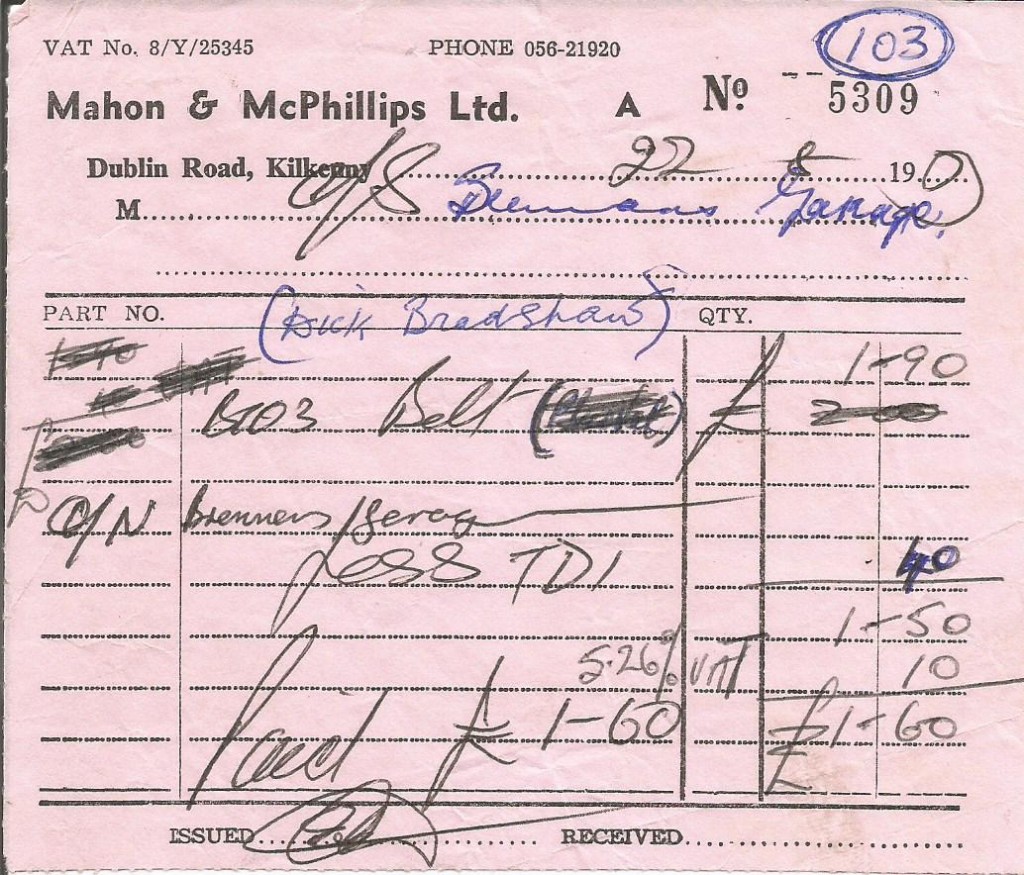 VAT No. 8/Y/25345 PHONE 056-21920 103
Mahon & McPhillips Ltd. A No. 5309
Dublin Road, Kilkenny 22 8 19
M C/S Garage,
(Dick Bradshaw)
PART NO. QTY.
1-90
Belt £
O/N Brennans Garage
Less TDI 40
1-50
5.26% VAT 10
Paid £1-60 £1-60
ISSUED RECEIVED